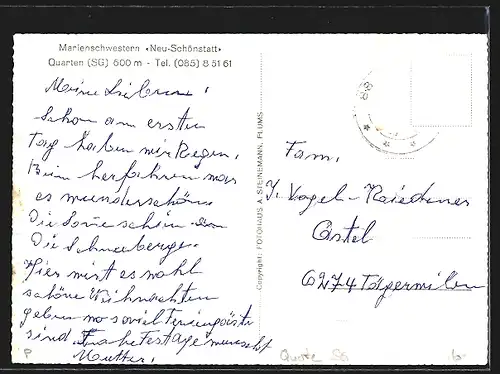 Marienschwestern «Neu-Schönstatt»
Quarten (SG) 600 m - Tel. (085) 8 51 61
Meine Lieben!
Schon am ersten
Tag haben wir Regen.
Beim herfahren war
es wunderschön
Die Sonne schien an
Die Schneeberge.
Hier wird es wohl
schöne Weihnachten
geben wo soviel
sind. Frohe Festage wünscht
Mutter.
Copyright: FOTOHAUS A. STEINEMANN, FLUMS
Fam.
J. Vogel-
6274
P
SG